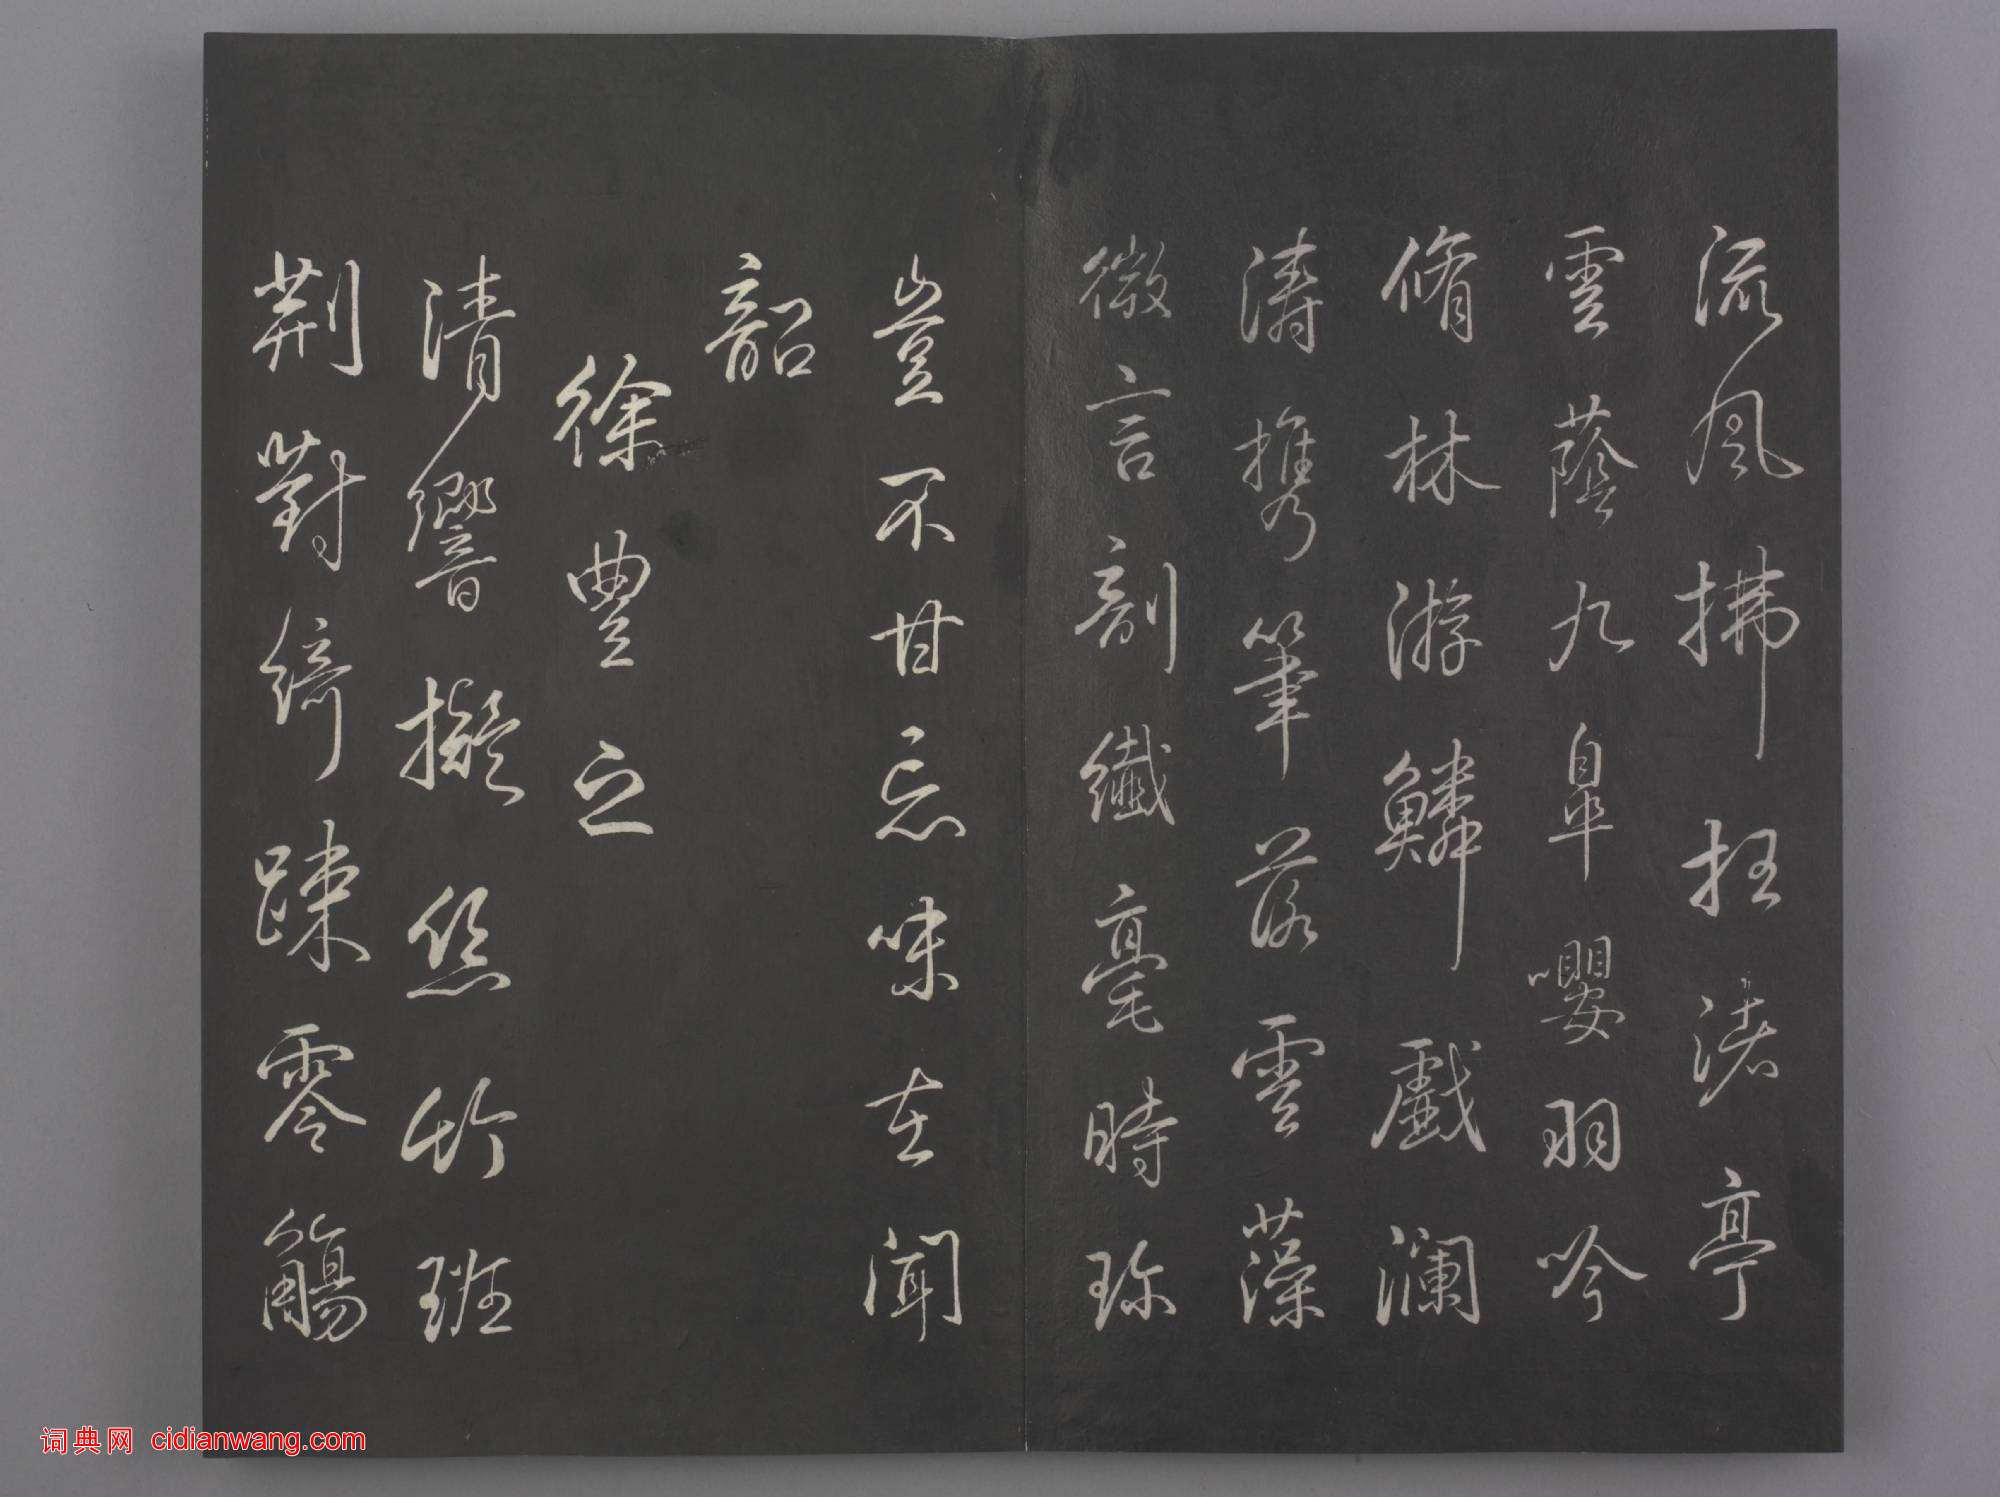 流風拂抂渚亭
雲蔭九皐嚶羽吟
脩林游鱗戲瀾
濤携筆落雲藻
微言剖纖毫時珍
豈不甘忘味在聞
韶
徐豐之
清響擬絲竹班
荆對綺踈零觴
词典网 cidianwang.com